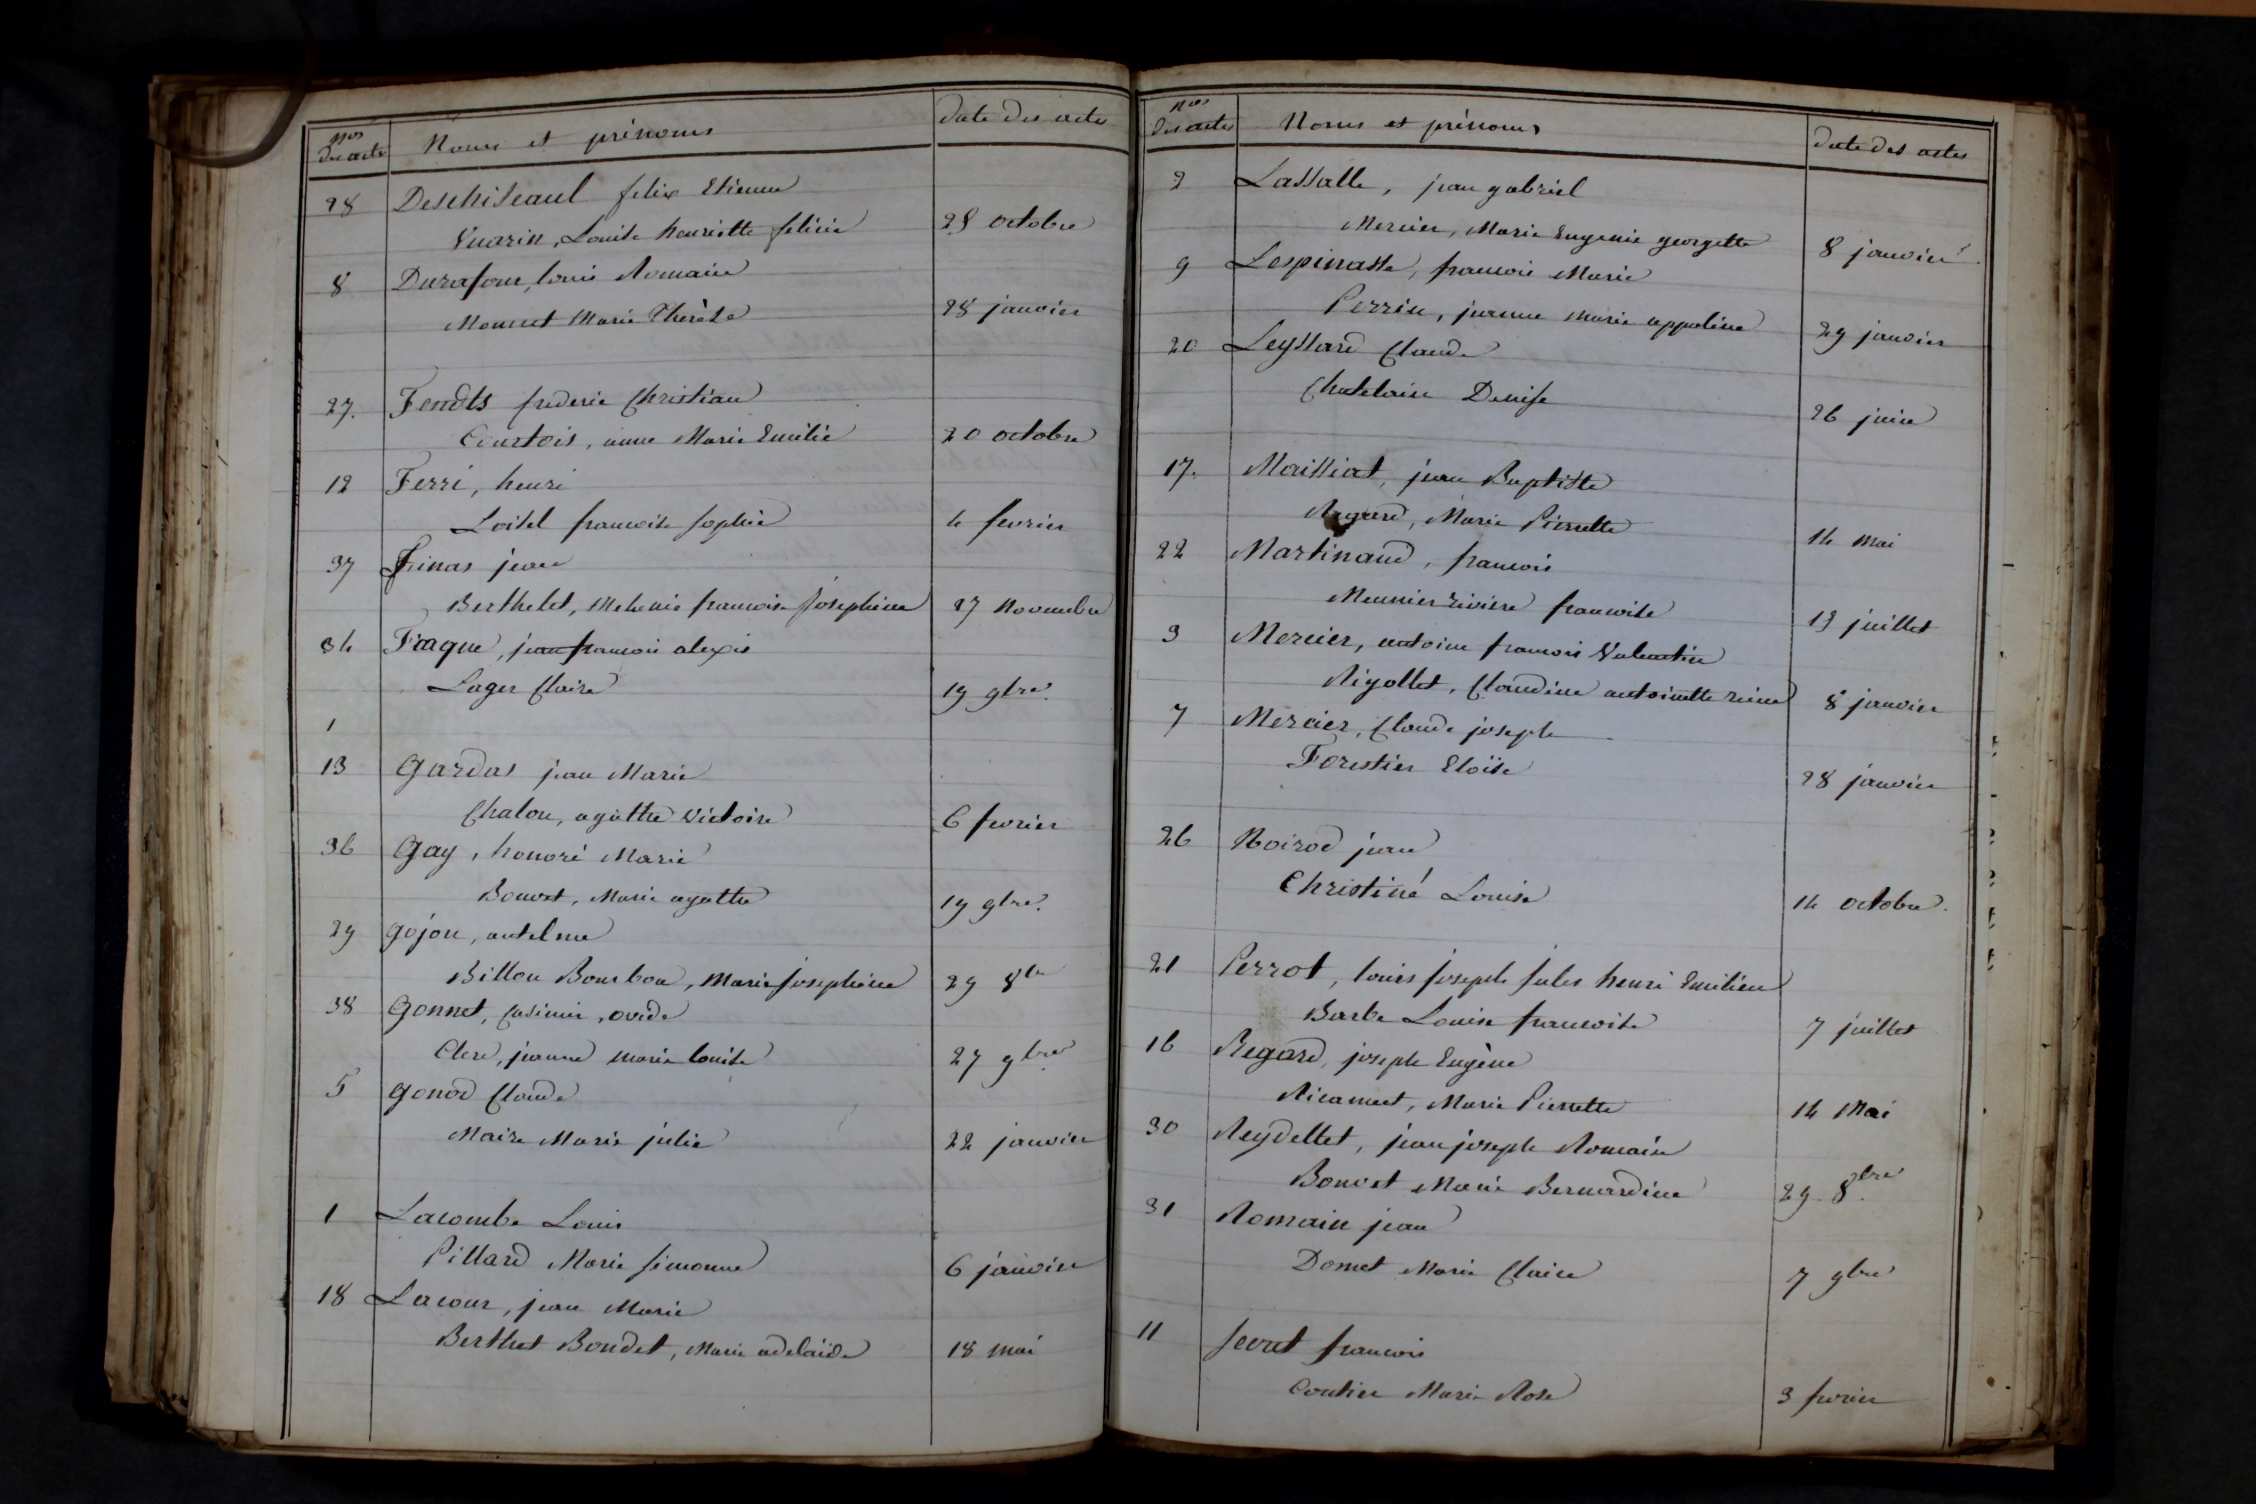 Nos des actes Noms et prénoms date des actes
28 Deschiseaul felix Etienne
Vuarin, Louise henriette felicie 28 octobre
8 Durafour, louis Romain
Monnet Marie Thérèse 28 janvier
27. Fendts frederic Christian
Courtois, anne Marie Emilie 20 octobre
12 Ferri, henri
Loisel francoise sophie 4 fevrier
37 Finas jean
Berthelet, Melanie francoise Josephine 27 Novembre
34 Fraque, jean francois alexis
Lager Claire 19 9bre.
1
13 Gardas jean Marie
Chalon, agathe Victoire 6 fevrier
36 Gay, honoré Marie
Bouvet, Marie agathe 19 9bre.
29 Gojon, antelme
Billon Bourbon, Marie Josephine 29 8bre
38 Gonnet, Casimir, ovide
Clerc, jeanne marie louise 27 9bre
5 Gonod Claude
Maire Marie julie 22 janvier
1 Lacombe Louis
Pillard Marie simonne 6 janvier
18 Lacour, jean Marie
Berthet Bondet, Marie adelaïde 18 mai
Nos des actes Noms et prénoms date des actes
2 Lassalle, jean gabriel
Mercier, Marie Eugenie georgette 8 janvier
9 Lespinasse, francois Marie
Perrin, jeanne marie appoline 29 janvier
20 Leyssard Claude
Chatelain Denise 26 juin
17. Maissiat, jean Baptiste
Regard, Marie Pierrette 14 mai
22 Martinand, francois
Meunier riviere francoise 13 juillet
3 Mercier, antoine francois Valentin
Rigollet, Claudine antoinette reine 8 janvier
7 Mercier, Claude joseph
Forestier Eloïse 28 janvier
26 Noirod jean
Christiné Louise 14 octobre.
21 Perrot, louis joseph jules henri Emilien
Barbe Louise francoise 7 juillet
16 Regard, joseph Eugène
Nicamuet, Marie Pierrette 14 Mai
30 Reydellet, jean joseph Romain
Bouvet Marie Bernardine 29 8bre
31 Romain jean
Domet Marie Claire 7 9bre
11 Secret francois
Coutier Marie Rose 3 fevrier